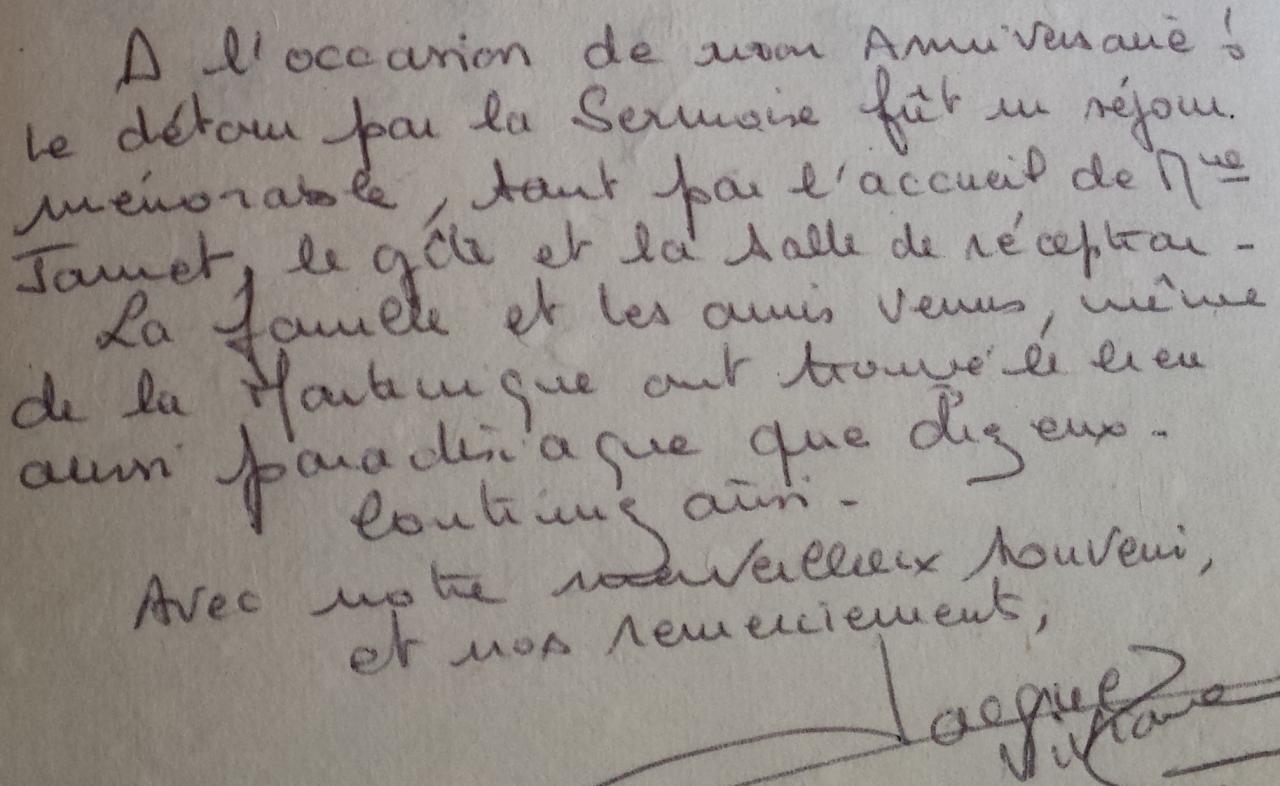 A l'occasion de mon Anniversaire !
le détour par la Sermoise fût un séjour
mémorable, tant par l'accueil de Mme
Jamet, le gîte et la salle de réception -
La famille et les amis venus, même
de la Martinique ont trouvé le lieu
aussi paradisiaque que chez eux -
Continuez ainsi -
Avec notre merveilleux souvenir,
et nos remerciements,
Jacques